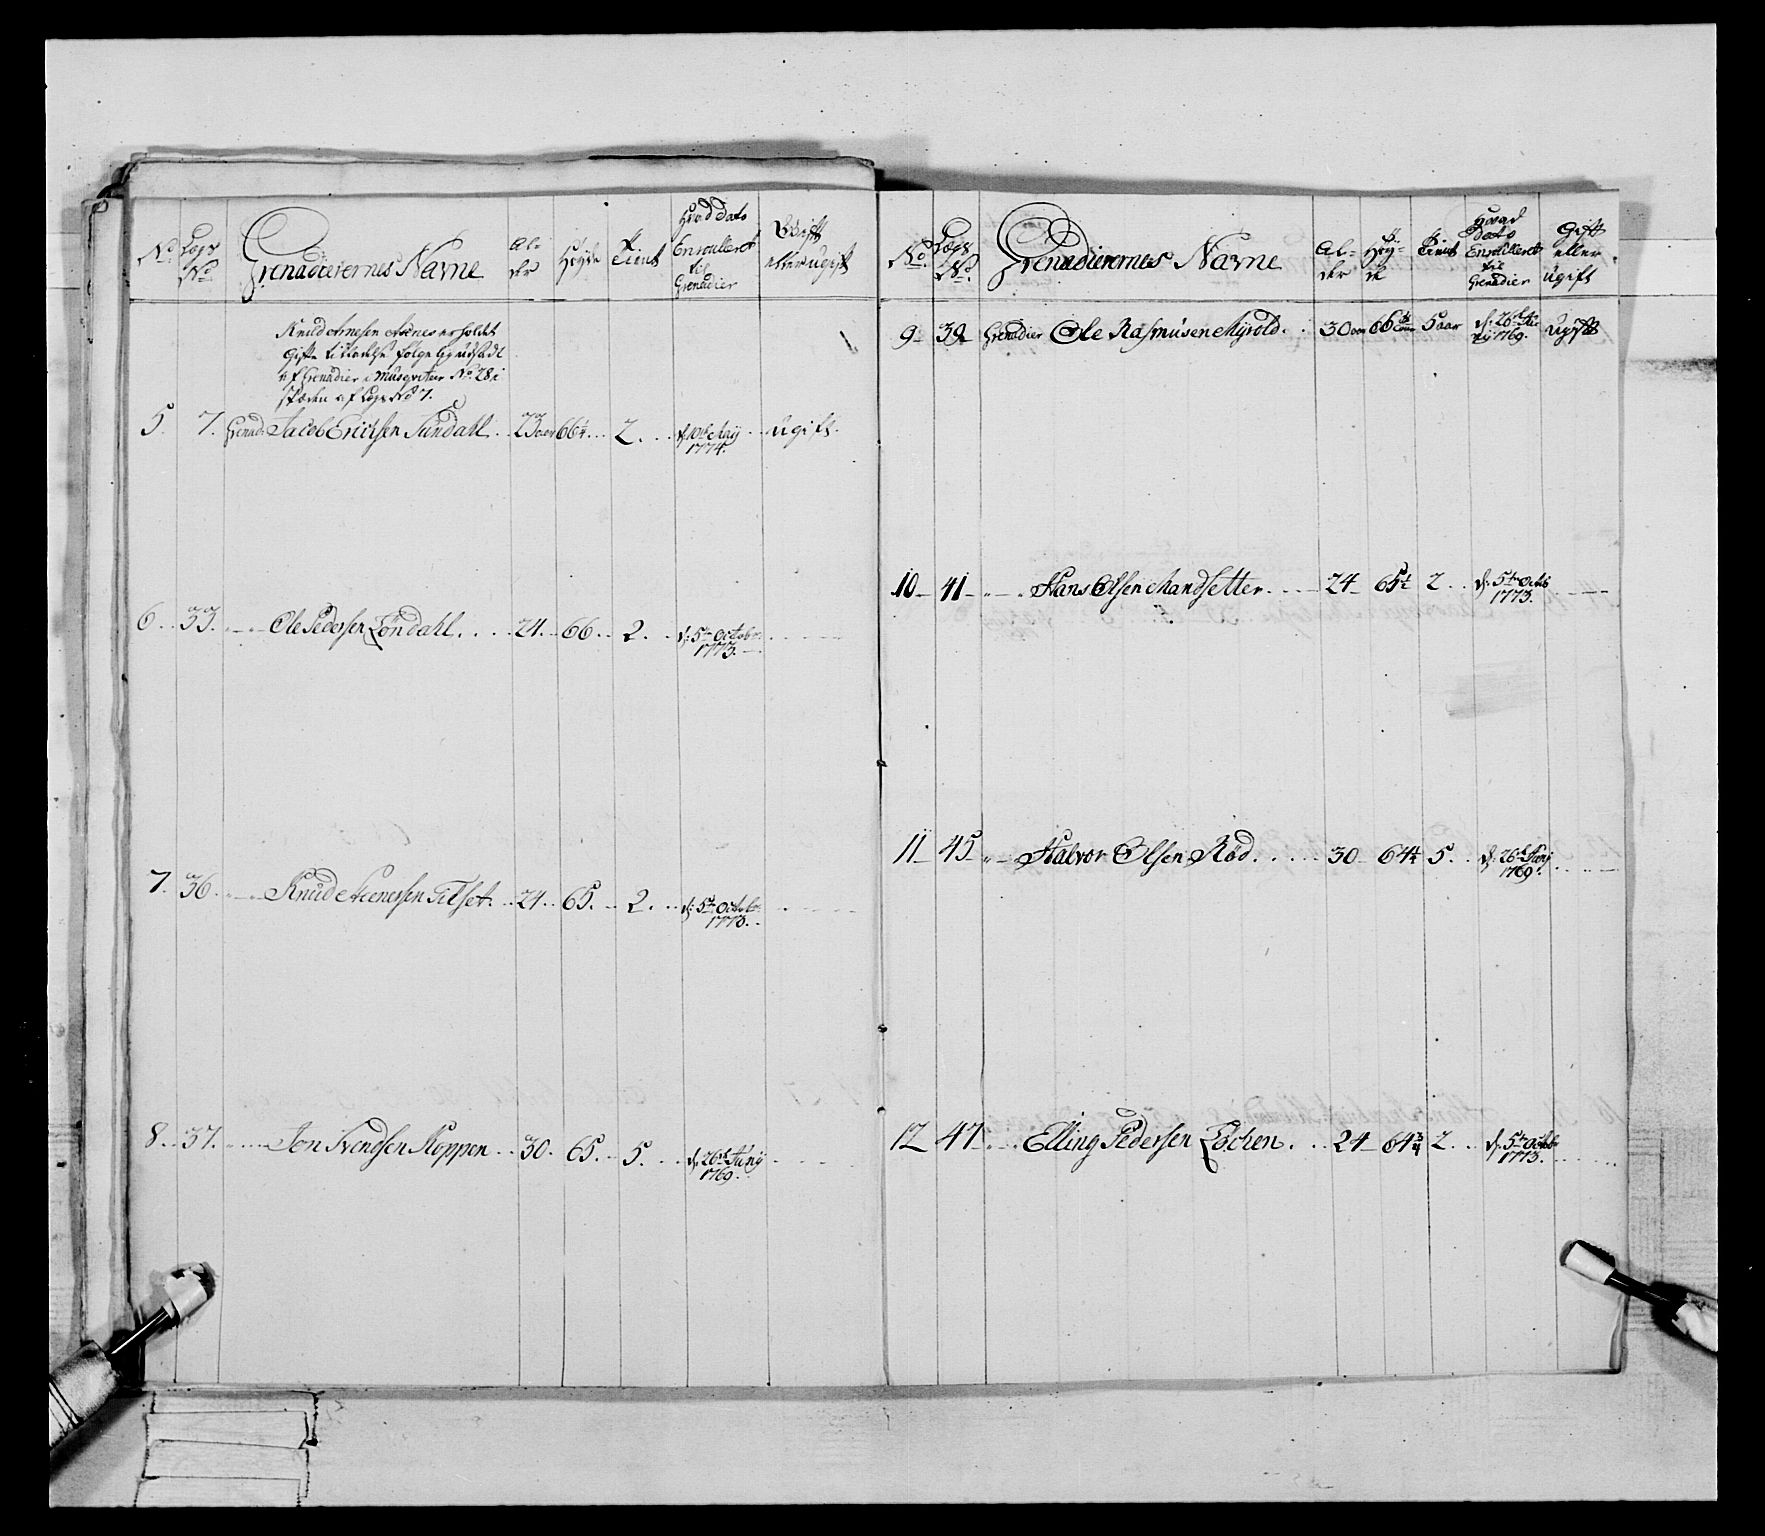 No. Lægs No. Grenadierernes Navne Al- der Høyde Tient Hvad dato Enroulleret til Grenadier Gift eller ugift
Knud Arnesen Aknes erholdet
Gifte tilladelse folge
af Grenadier Musqveteer No. 28 i
stæden af Lægs No 7.
5. 7. Grenad: Jacob Erichsen Sundahl 23 aar 66 1/4 2. d: 10de Maij 1774. ugift.
6. 33. Ole Pedersen Løndahl. 24. 66. 2. d: 5te Octobr: 1773.
7. 36. Knud Arenessen Tilset. 24. 65. 2. d: 5te Octobr: 1773.
8. 37. Jon Svendsen Koppen 30. 65. 5. d: 26de Junij 1769.
No. Lægs No. Grenadierernes Navne Al- der Høy- de Tient Hvad dato Enroulleret til Grenadier Gift eller ugift
9 39 Grenadier Ole Rasmusen Myrold. 30 aar 66 5 aar d: 26de Junij 1769. ugift
10 41 Hans Olsen Mandsetter. 24 65 1/2 2 d: 5te Octob 1773.
11 45 Halvor Olsen Rød. 30 64 1/2 5. d: 26de Junij 1769.
12 47 Elling Pedersen Løchen. 24 64 3/4 2 d: 5te Octobr 1773.